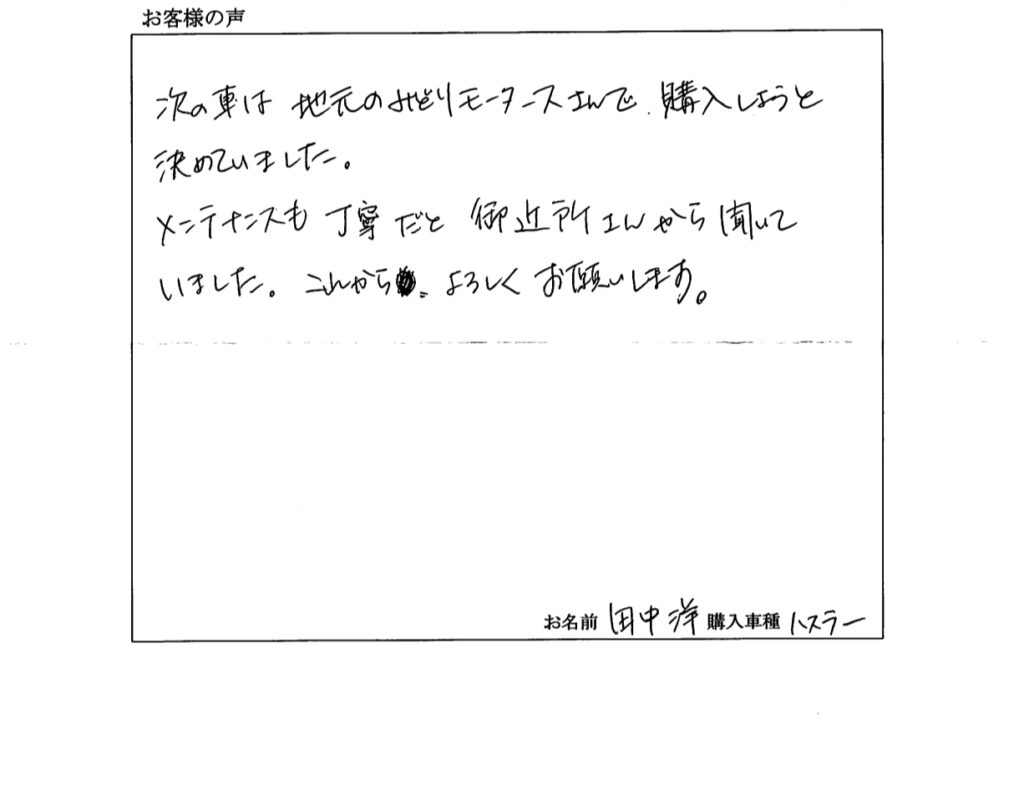 お客様の声
次の車は 地元のみどりモータースさんで、購入しようと
決めていました。
メンテナンスも 丁寧だと 御近所さんから聞いて
いました。これから、よろしくお願いします。
お名前 田中 洋 購入車種 ハスラー